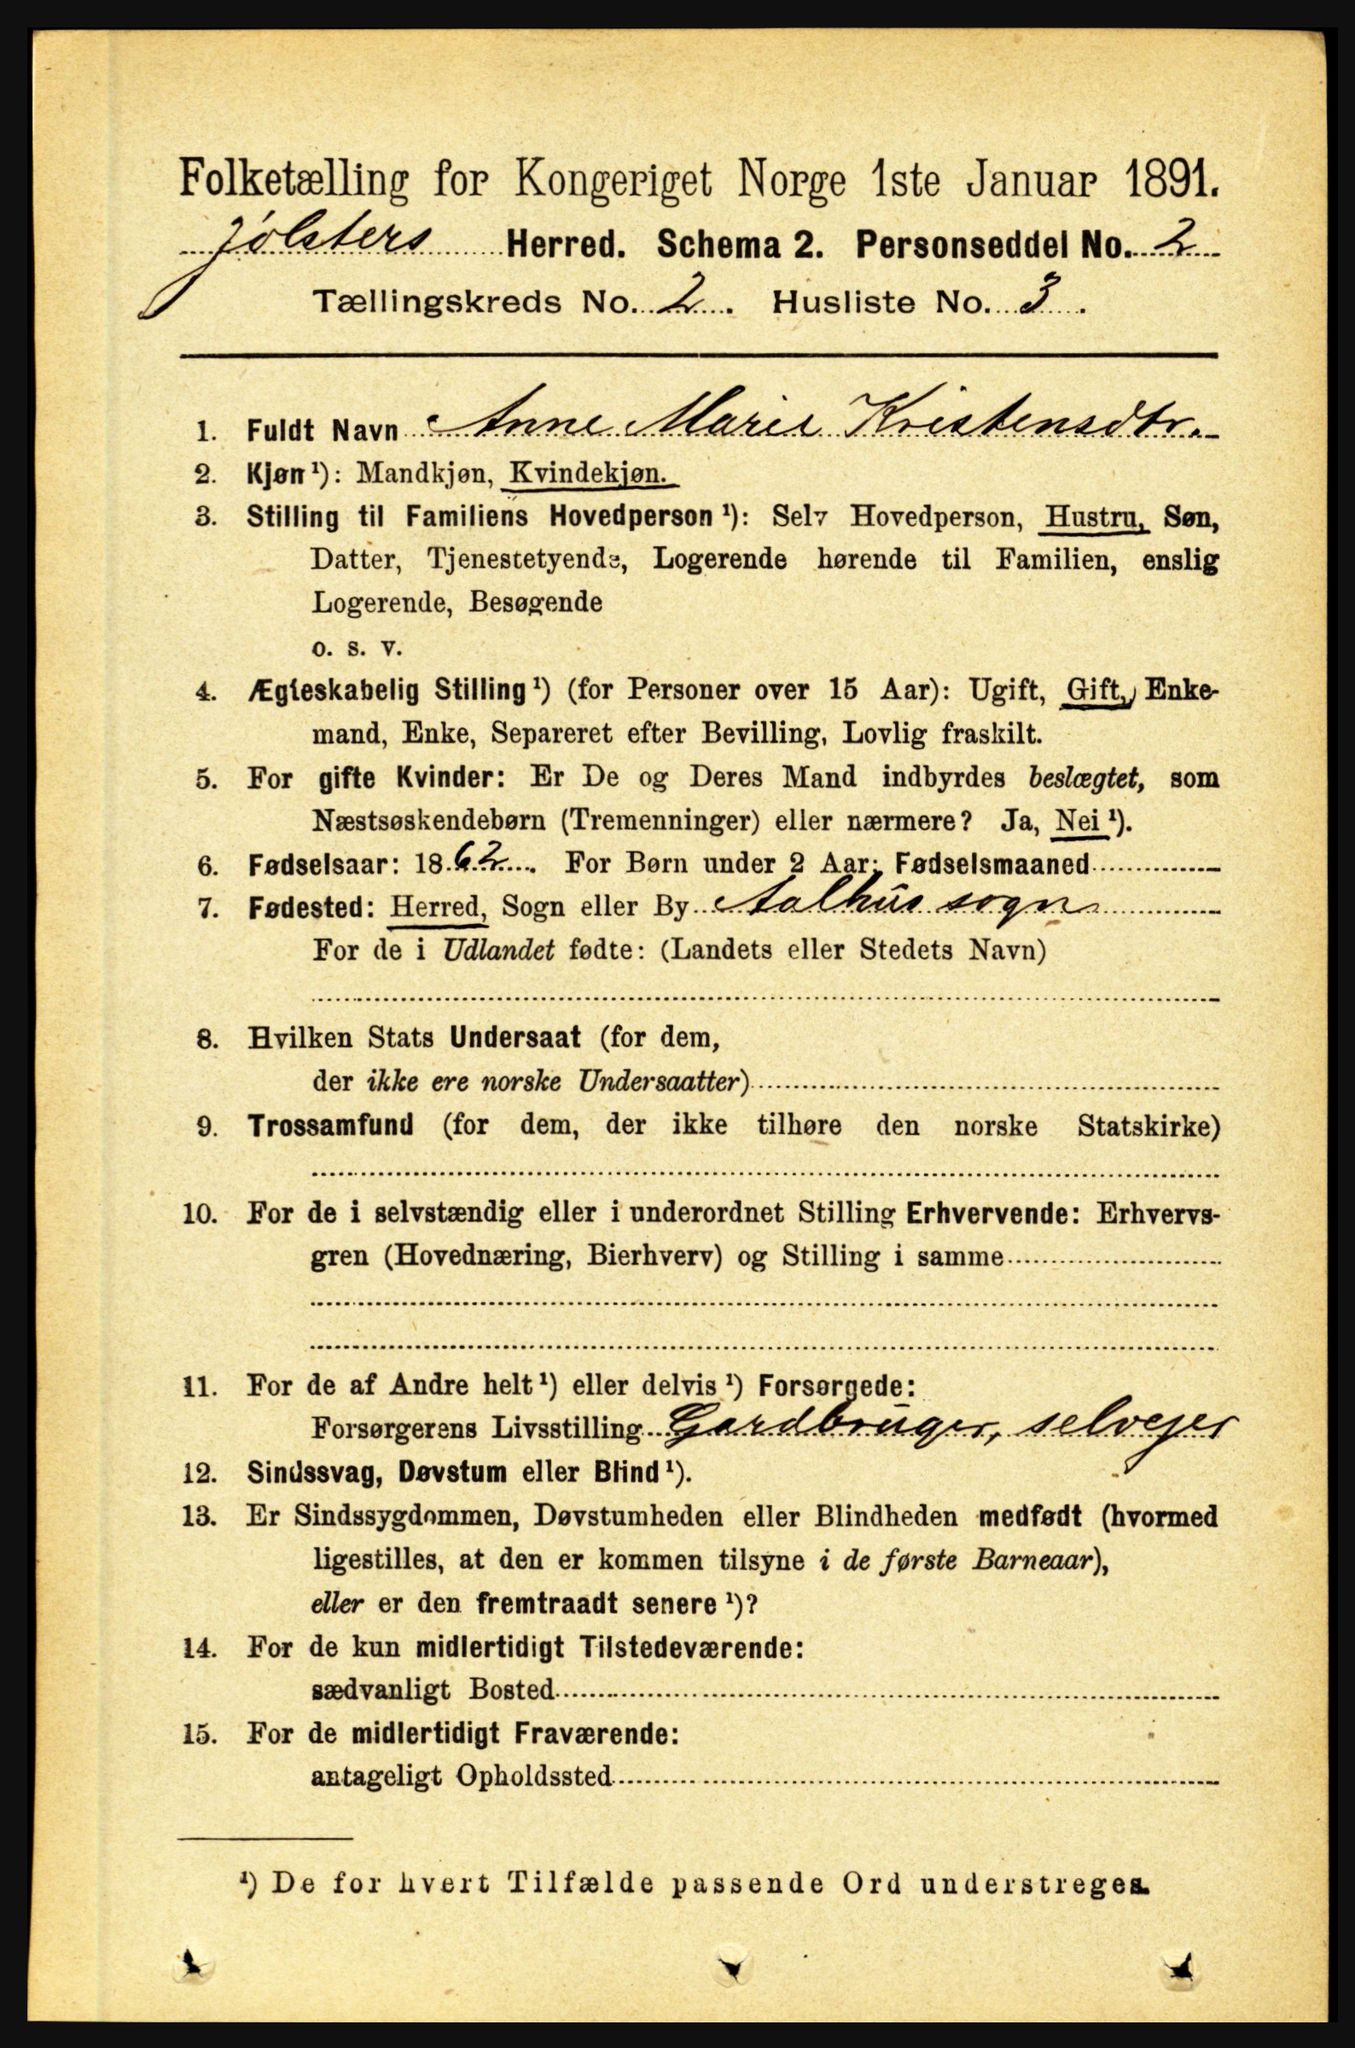 Folketælling for Kongeriget Norge 1ste Januar 1891.
Jölsters Herred. Schema 2. Personseddel No. 2
Tællingskreds No. 2. Husliste No. 3.
1. Fuldt Navn Anne Marie Kristensdtr.
2. Kjøn ¹): Mandkjøn, Kvindekjøn.
3. Stilling til Familiens Hovedperson ¹): Selv Hovedperson, Hustru, Søn,
Datter, Tjenestetyende, Logerende hørende til Familien, enslig
Logerende, Besøgende
o. s. v.
4. Ægteskabelig Stilling ¹) (for Personer over 15 Aar): Ugift, Gift, Enke-
mand, Enke, Separeret efter Bevilling, Lovlig fraskilt.
5. For gifte Kvinder: Er De og Deres Mand indbyrdes beslægtet, som
Næstsøskendebørn (Tremenninger) eller nærmere? Ja, Nei ¹).
6. Fødselsaar: 1862. For Børn under 2 Aar: Fødselsmaaned
7. Fødested: Herred, Sogn eller By Aalhus sogn
For de i Udlandet fødte: (Landets eller Stedets Navn)
8. Hvilken Stats Undersaat (for dem,
der ikke ere norske Undersaatter)
9. Trossamfund (for dem, der ikke tilhøre den norske Statskirke)
10. For de i selvstændig eller i underordnet Stilling Erhvervende: Erhvervs-
gren (Hovednæring, Bierhverv) og Stilling i samme
11. For de af Andre helt ¹) eller delvis ¹) Forsørgede:
Forsørgerens Livsstilling Gardbruger, selvejer
12. Sindssvag, Døvstum eller Blind ¹).
13. Er Sindssygdommen, Døvstumheden eller Blindheden medfødt (hvormed
ligestilles, at den er kommen tilsyne i de første Barneaar),
eller er den fremtraadt senere ¹)?
14. For de kun midlertidigt Tilstedeværende:
sædvanligt Bosted
15. For de midlertidigt Fraværende:
antageligt Opholdssted
¹) De for hvert Tilfælde passende Ord understreges.